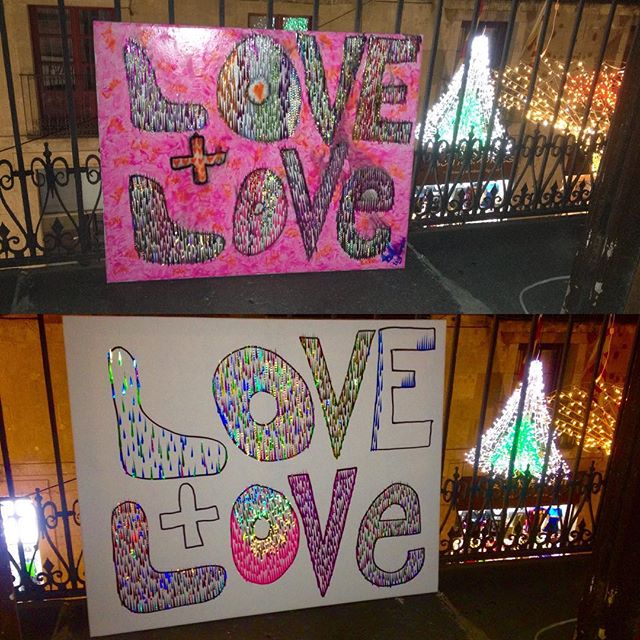 LOVE
+
LOVe
LOVE
+
LOVe